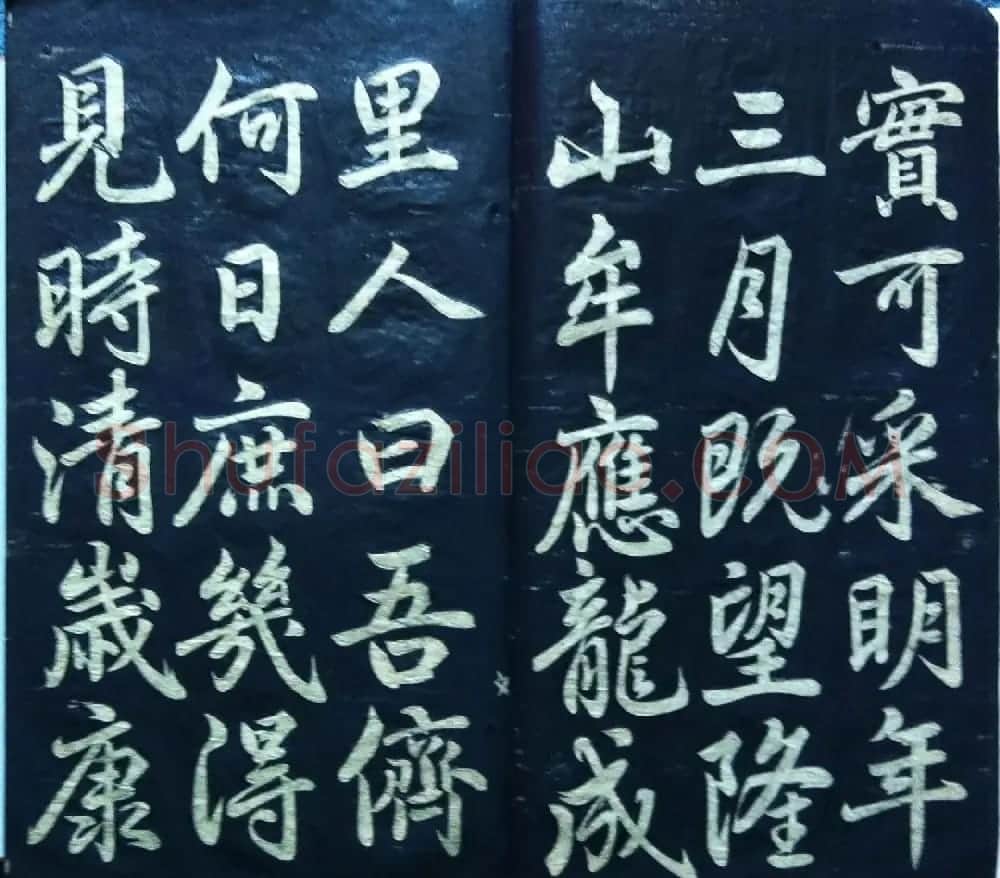 實可采明年
三月既望隆
山牟應龍成
里人曰吾儕
何日庶幾得
見時清歲康
Shufaziliao.COM